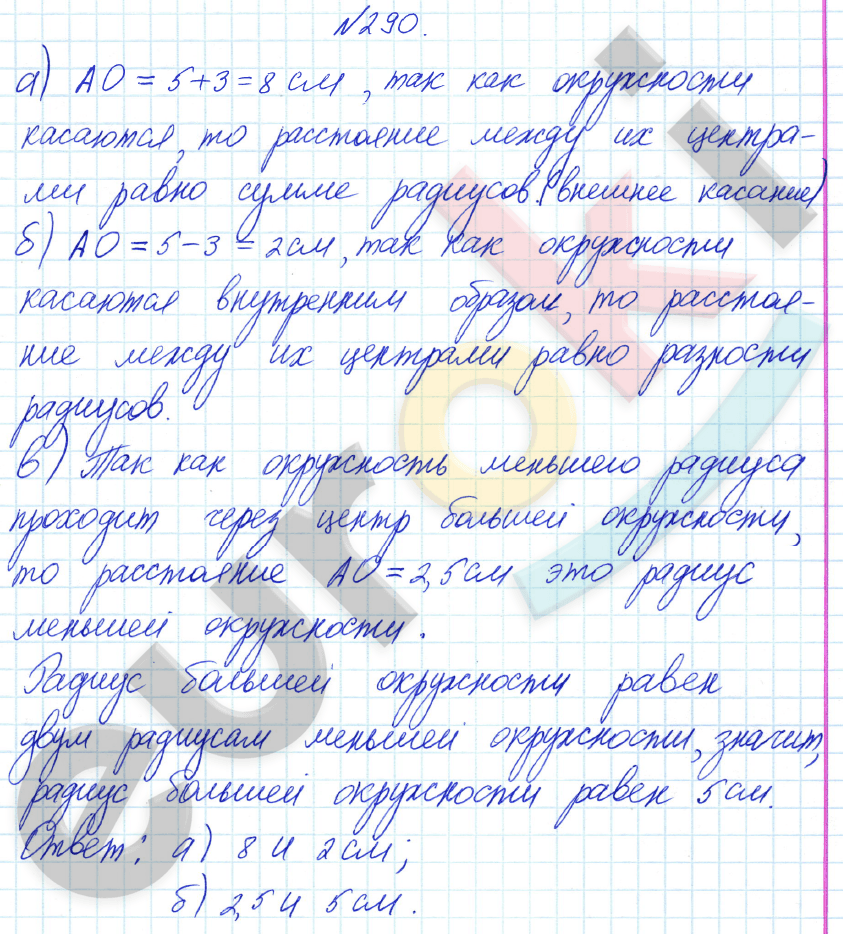 №290.
а) АО = 5+3 = 8 см, так как окружности
касаются, то расстояние между их центра-
ми равно сумме радиусов. (внешнее касание)
б) АО = 5-3 = 2см, так как окружности
касаются внутренним образом, то расстоя-
ние между их центрами равно разности
радиусов.
в) Так как окружность меньшего радиуса
проходит через центр большей окружности,
то расстояние АО = 2,5см это радиус
меньшей окружности.
Радиус большей окружности равен
двум радиусам меньшей окружности, значит,
радиус большей окружности равен 5см.
Ответ: а) 8 и 2см;
б) 2,5 и 5см.
euroki